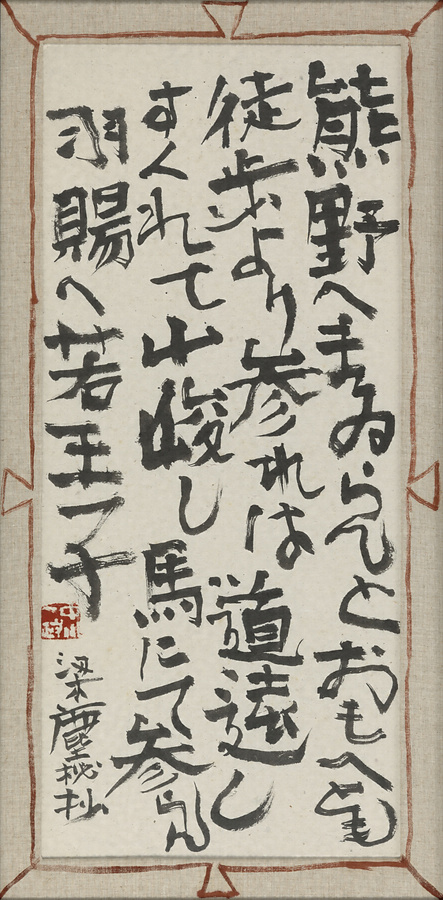 熊野へまゐらんとおもへとも
徒歩より参れは道遠し
すくれて山峻し馬にて参らん
羽賜へ若王子
梁塵秘抄